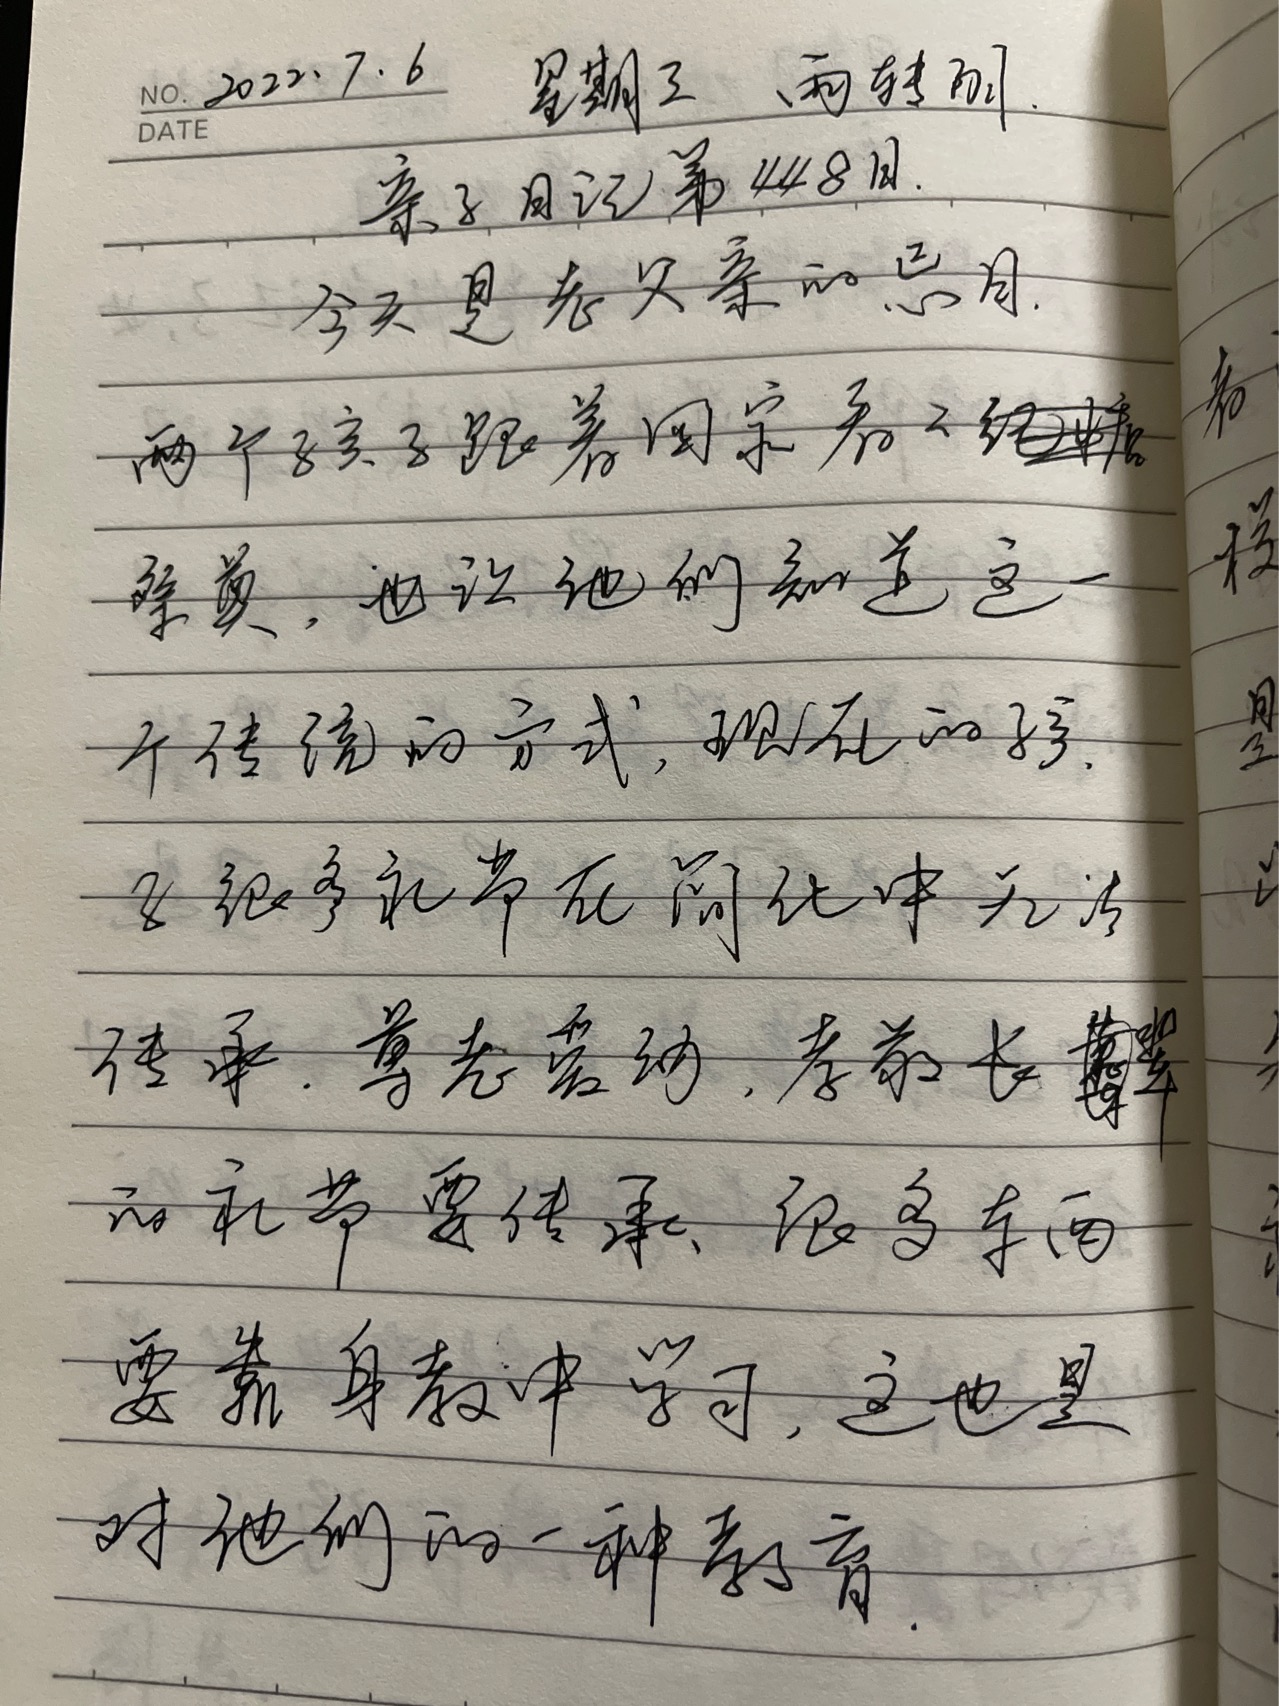 NO. 2022.7.6 星期三 雨转阴.
DATE
亲子日记第448日.
今天是老父亲的忌日.
两个孩子跟着回家看了
祭奠,也让他们知道这一
个传统的方式,现在的孩.
子很多礼节在简化中无法
传承.尊老爱幼,孝敬长辈
的礼节要传承、很多东西
要靠身教中学习,这也是
对他们的一种教育.